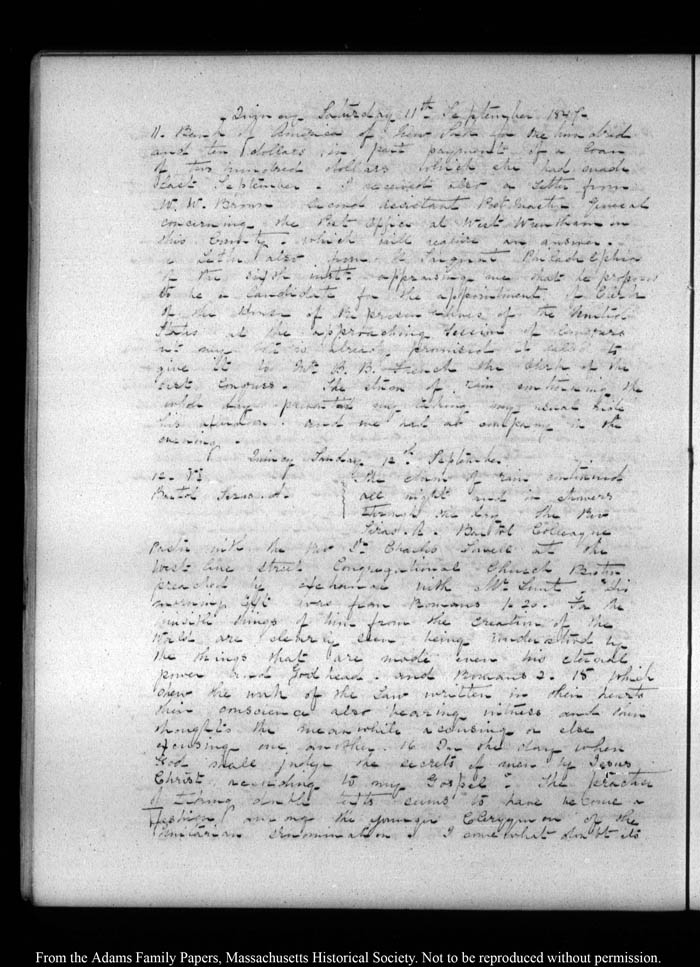 Quincy Saturday 11th September 1847.
11. Bank of America of New York for one hundred
and ten dollars in part payment of a loan
of two hundred dollars which she had made
last September. I received also a Letter from
W. W. Brown Second Assistant Post Master General
concerning the Post Office at West Wrentham in
this County. which will require an answer.
a Letter also from Philadelphia
of the inst. apprising me that he proposes
to be a Candidate for the appointment of Clerk
of the House of Representatives of the United
States at the approaching Session of Congress
give it to Mr B. B. French the Clerk of the
last Congress. The storm of rain embracing the
whole day prevented my taking my usual ride
this afternoon. and we had no company in the
evening.
Quincy Sunday 12th September
12. VI.
Bartol Cyrus A.
The storm of rain continued
all night and in showers
through the day. The Revd
Cyrus A. Bartol Colleague
Pastor with the Revd Dr Charles Lowell at the
West Street Congregational Church Boston
preached by exchange with Mr Lunt. His
morning Text was from Romans 1. 20. For the
invisible things of him from the Creation of the
World are clearly seen being understood by
the things that are made even his eternal
power and Godhead. and Romans 2. 15 which
shew the work of the Law written in their hearts
their conscience also bearing witness and their
thoughts the meanwhile accusing or else
excusing one another. 16 In the day when
God shall judge the secrets of men by Jesus
Christ according to my Gospel. The practice
of taking double texts seems to have become a
fashion among the younger Clergymen of the
Unitarian denomination. I somewhat doubt its
From the Adams Family Papers, Massachusetts Historical Society. Not to be reproduced without permission.